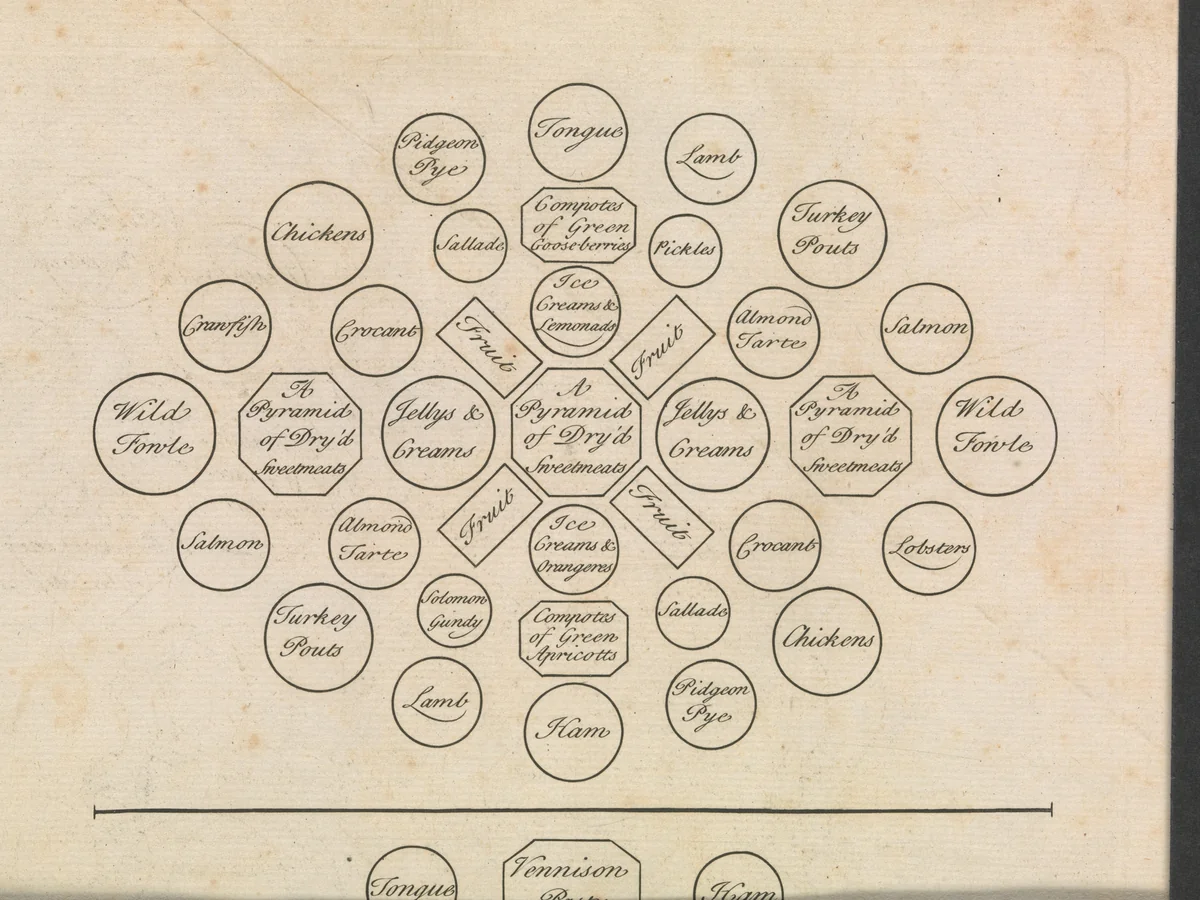 Tongue
Pidgeon
Pye
Lamb
Compotes
of Green
Gooseberries
Chickens
Sallade
Pickles
Turkey
Pouts
Ice
Creams &
Lemonads
Crawfish
Crocant
Fruit
Fruit
Almond
Tarte
Salmon
Wild
Fowle
A
Pyramid
of Dry'd
Sweetmeats
Jellys &
Creams
A
Pyramid
of Dry'd
Sweetmeats
Jellys &
Creams
A
Pyramid
of Dry'd
Sweetmeats
Wild
Fowle
Salmon
Almond
Tarte
Fruit
Ice
Creams &
Orangeres
Fruit
Crocant
Lobsters
Turkey
Pouts
Solomon
Gundy
Compotes
of Green
Apricotts
Sallade
Chickens
Lamb
Ham
Pidgeon
Pye
Tongue
Vennison
Ham